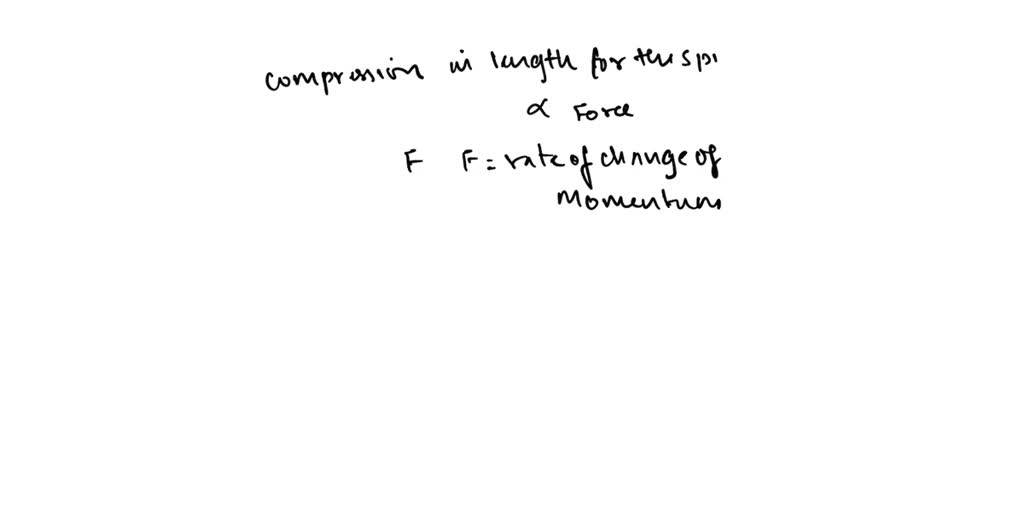 compression in length for the spi
∝ Force
F F = rate of change of
Momentum